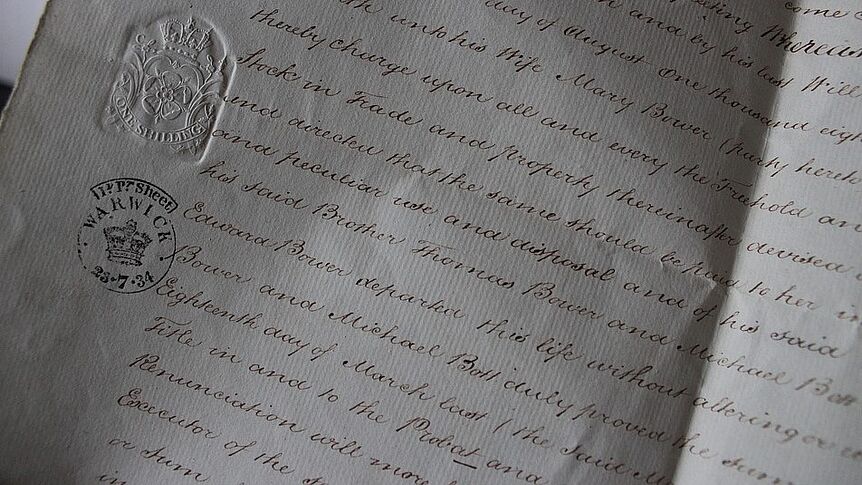 ONE SHILLING
(1s. Pr. Sheet)
WARWICK
23·7·34
come
Whereas
day of August One thousand eigh
in and by his last Will
unto his Wife Mary Bower (party hereto
thereby charge upon all and every the Freehold an
Stock in Trade and property thereinafter devised
and directed that the same should be paid to her in
and peculiar use and disposal and of his said
his said Brother Thomas Bower and Michael Bott
Edward Bower departed this life without altering or
Bower and Michael Bott duly proved the same
Eighteenth day of March last (the said
Title in and to the Probat and
Renunciation will more
Executor of the
or sum
in